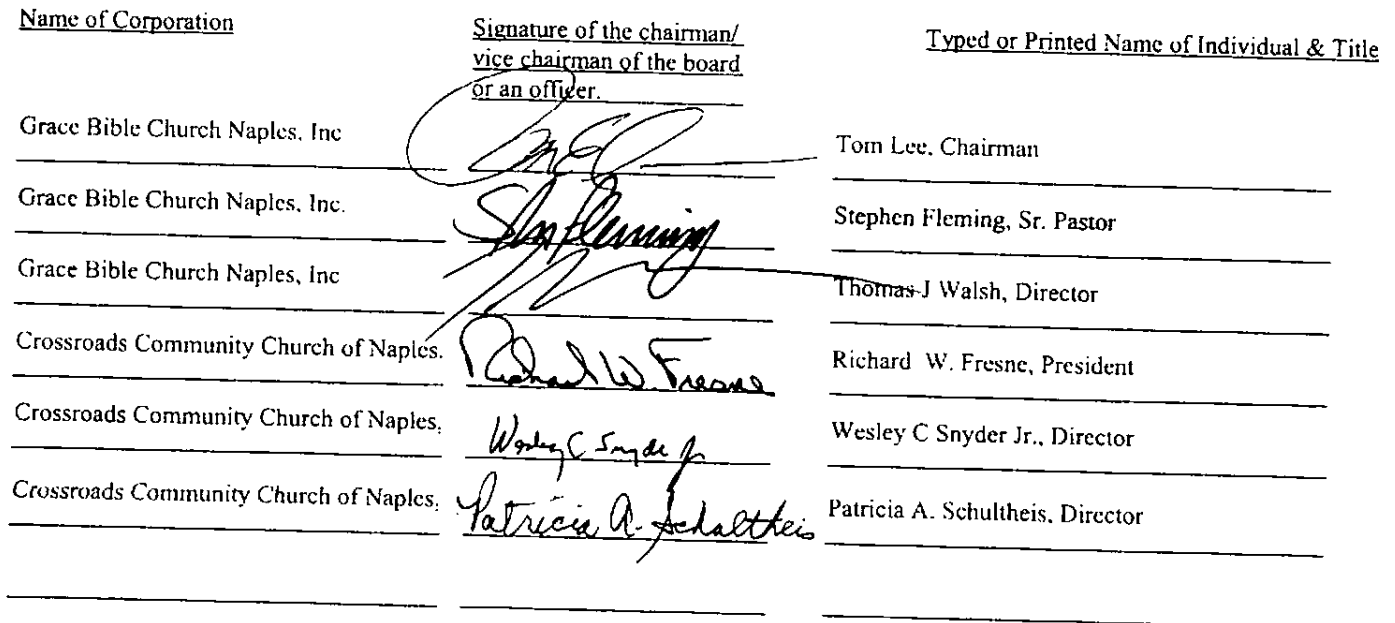 Name of Corporation
Signature of the chairman/
vice chairman of the board
or an officer.
Typed or Printed Name of Individual & Title
Grace Bible Church Naples, Inc
Tom Lee, Chairman
Grace Bible Church Naples, Inc.
Stephen Fleming, Sr. Pastor
Grace Bible Church Naples, Inc
Thomas J Walsh, Director
Crossroads Community Church of Naples,
Richard W. Fresne
Richard W. Fresne, President
Crossroads Community Church of Naples,
Wesley C Snyder Jr
Wesley C Snyder Jr., Director
Crossroads Community Church of Naples,
Patricia A. Schultheis
Patricia A. Schultheis, Director